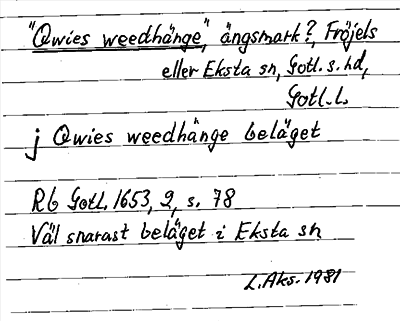 "Qwies weedhänge", ängsmark?, Fröjels
eller Eksta sn, Gotl. s. hd,
Gotl. l.
j Qwies weedhänge beläget
Rb Gotl. 1653, 2, s. 78
Väl snarast beläget i Eksta sn
L. Aks. 1981